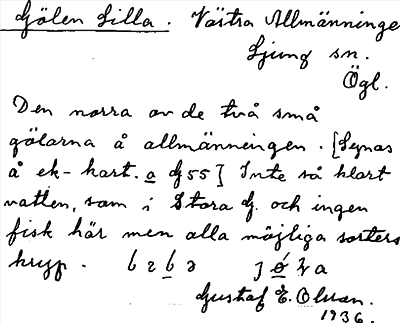 Gölen Lilla. Västra Allmänninge
Ljung sn.
Ögl.
Den norra av de två små
gölarna å allmänningen. [Synas
å ek-kart. a G 55] Inte så klart
vatten, som i Stora G. och ingen
fisk här men alla möjliga sorters
kryp.
Gustaf E. Olsson.
1936.